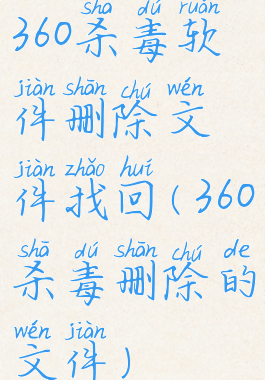 shā dú ruǎn
360杀毒软
jiàn shān chú wén
件删除文
jiàn zhǎo huí
件找回(360
shā dú shān chú de
杀毒删除的
wén jiàn
文件)